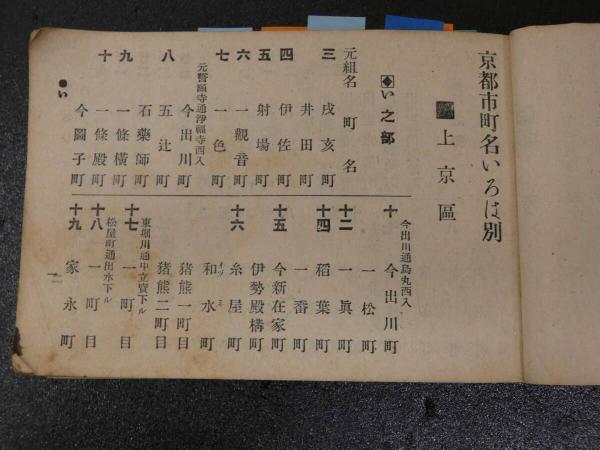 京都市町名いろは別
上京區
い之部
元組名 町名
三 戌亥町
井田町
四 伊佐町
五 射場町
六 一觀音町
七 一色町
元誓願寺通淨福寺西入
今出川町
八 五辻町
石藥師町
九 一條橫町
十 一條殿町
今圖子町
今出川通烏丸西入
十 今出川町
一松町
十二 一眞町
十四 稻葉町
一番町
十五 今新在家町
伊勢殿構町
十六 糸屋町
和水町
猪熊一町目
猪熊二町目
東堀川通中立賣下ル
十七 一町目
松屋町通出水下ル
十八 一町目
十九 家永町
●い
一